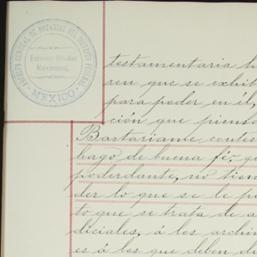 ARCHIVO GENERAL DE NOTARIAS DEL DISTRITO FEDERAL
Estados Unidos
Mexicanos.
MEXICO
testamentaria
ren que se exhib
para poder en él,
ción que piens
Bastariame contes
hago de buena fé, q
poderdante, no tien
der lo que se le p
to que se trata de a
diciales, á los archi
es á los que deben d